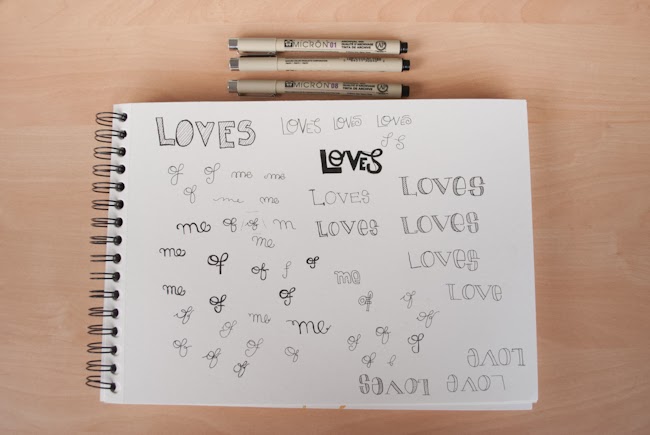 MICRON 01
MICRON 08
LOVES LOVES LOVES LOVES
LOVES
of of me me
of me me LOVES LOVES
me of of m LOVES LOVES
me
me of of f of me LOVES
me of of of of LOVE
of of me me of
of of of of of of of
of of
LOVE
LOVES LOVE